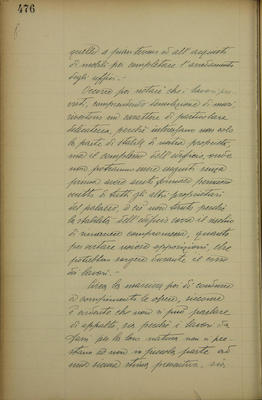 476
quelle a pian terreno ed all'acquisto
di mobili per completare l'arredamento
degli uffici.
Occorre poi notare che i lavori
comprendendo demolizione di muri
rivestono un carattere di particolare
delicatezza, perchè interessano non solo
la parte di stabile di nostra proprietà,
ma il complesso dell'edificio, onde
non potranno essere eseguiti senza
prima avere
di tutti gli altri proprietari
del palazzo, e ciò non tanto perchè
la stabilità dell'edificio corra il rischio
di rimanere compromessa, quanto
per evitare noiose opposizioni che
potrebbero sorgere durante il corso
dei lavori.
Circa la maniera poi di condurre
a compimento le opere, siccome
è evidente che non si può parlare
di appalto, sia perchè i lavori da
farsi per la loro natura non si pre-
stano se non in piccola parte ad
una sicura stima preventiva, sia